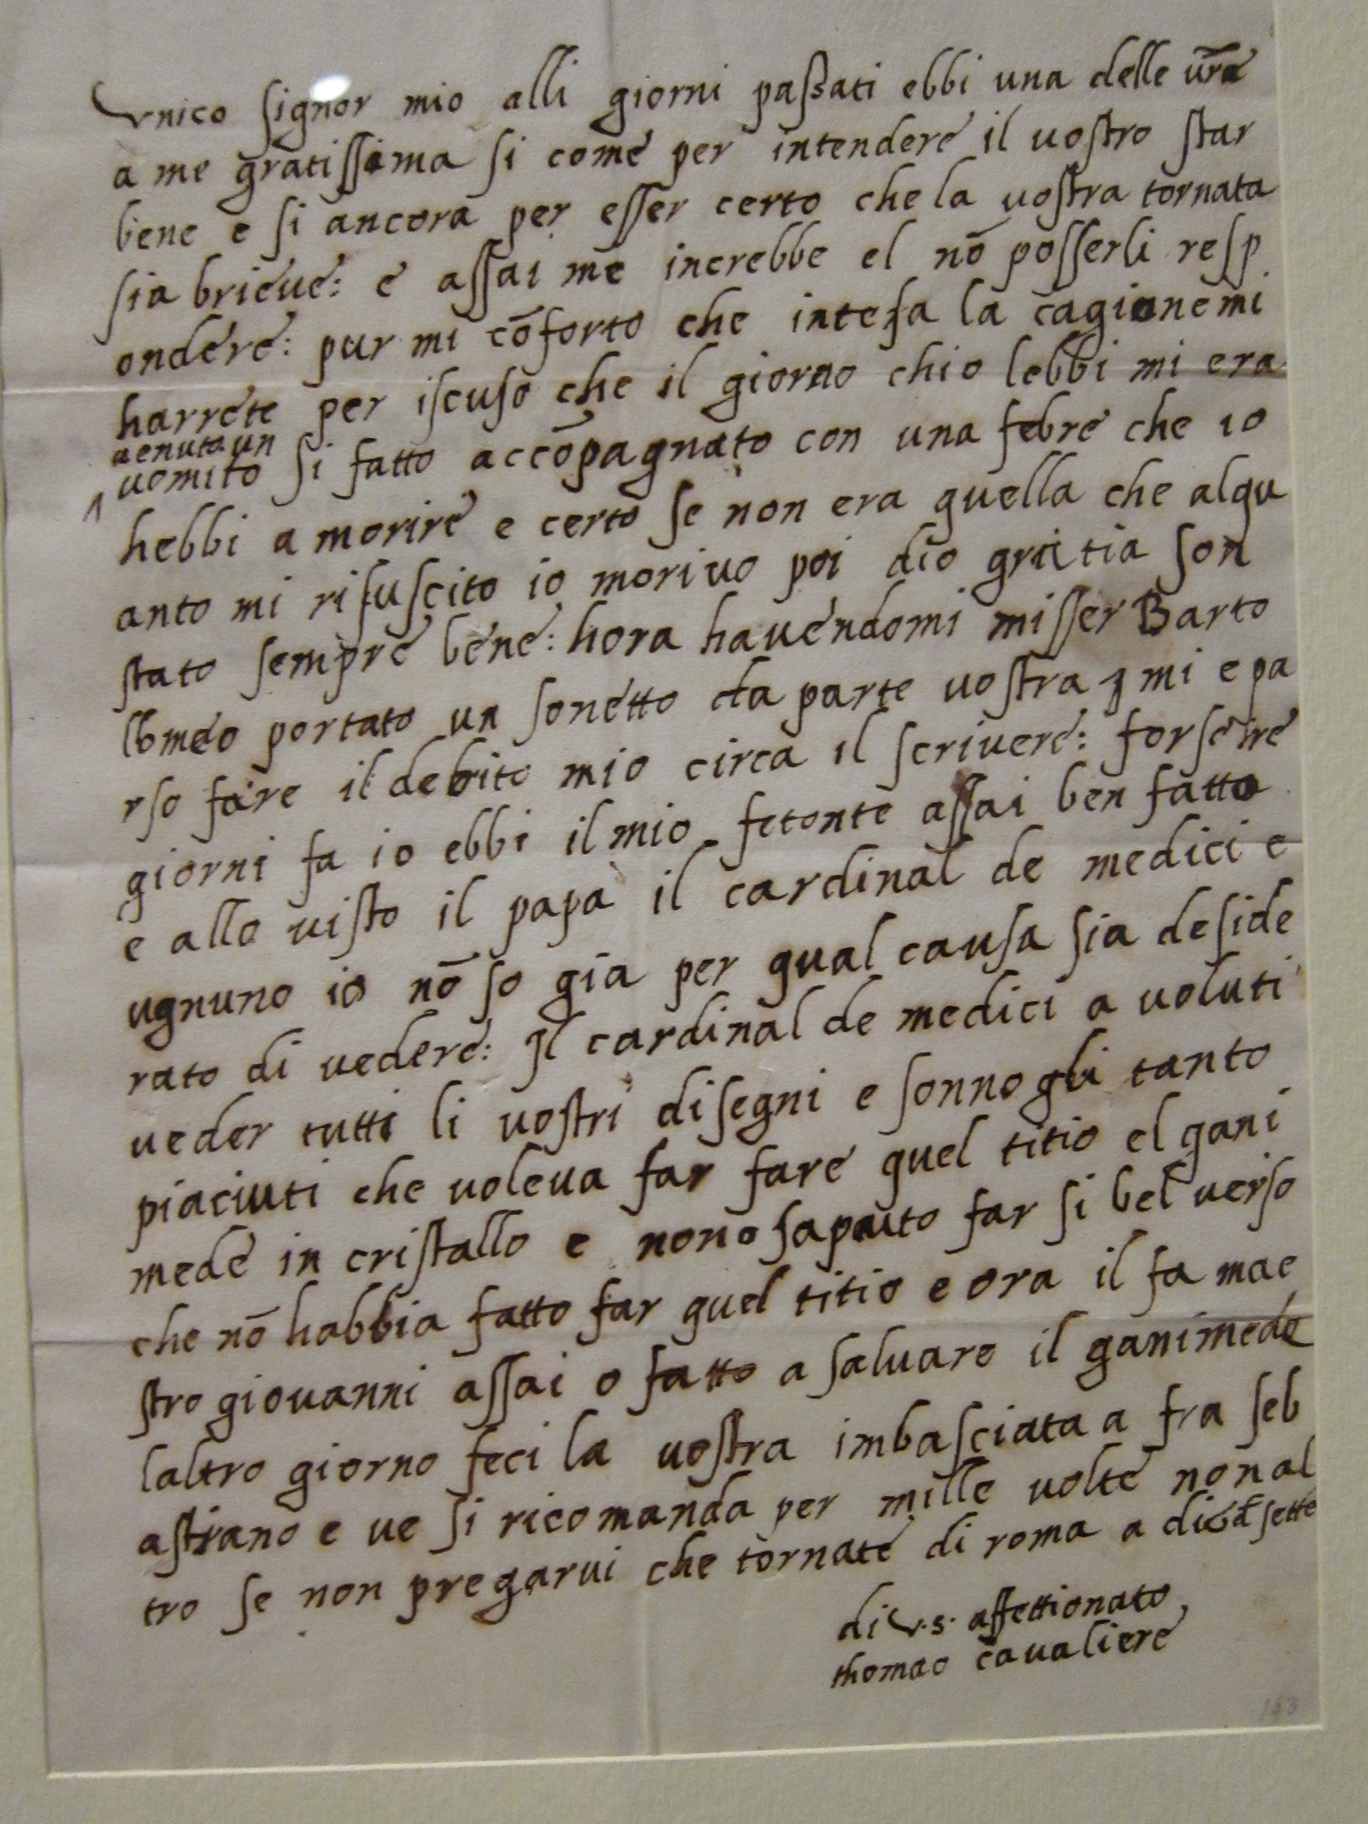 vnico signor mio alli giorni passati ebbi una delle vr̃e
a me gratissima si come per intendere il vostro star
bene e si ancora per esser certo che la vostra tornata
sia brieve: e assai me increbbe el nō posserli resp
ondere: pur mi cōforto che intesa la cagione mi
harrete per iscuso che il giorno chio lebbi mi era
venuto un
vomito si fatto accōpagnato con una febre che io
hebbi a morire e certo se non era quella che alqu
anto mi risuscito io morivo poi dio gratia son
stato sempre bene: hora havendomi misser Barto
lomeo portato un sonetto da parte vostra mi e pa
rso fare il debito mio circa il scrivere: forse tre
giorni fa io ebbi il mio fetonte assai ben fatto
e allo visto il papa il cardinal de medici e
ugnuno io nō so gia per qual causa sia deside
rato di vedere: Il cardinal de medici a voluti
veder tutti li vostri disegni e sonnogli tanto
piaciuti che voleva far fare quel titio el gani
mede in cristallo e non o saputo far si bel verso
che nō habbia fatto far quel titio e ora il fa mae
stro giovanni assai o fatto a salvare il ganimede
laltro giorno feci la vostra imbasciata a fra seb
astiano e ve si ricomanda per mille volte non al
tro se non pregarvi che tornate di roma a di sette
di v.s. affettionato
thomao cavaliere